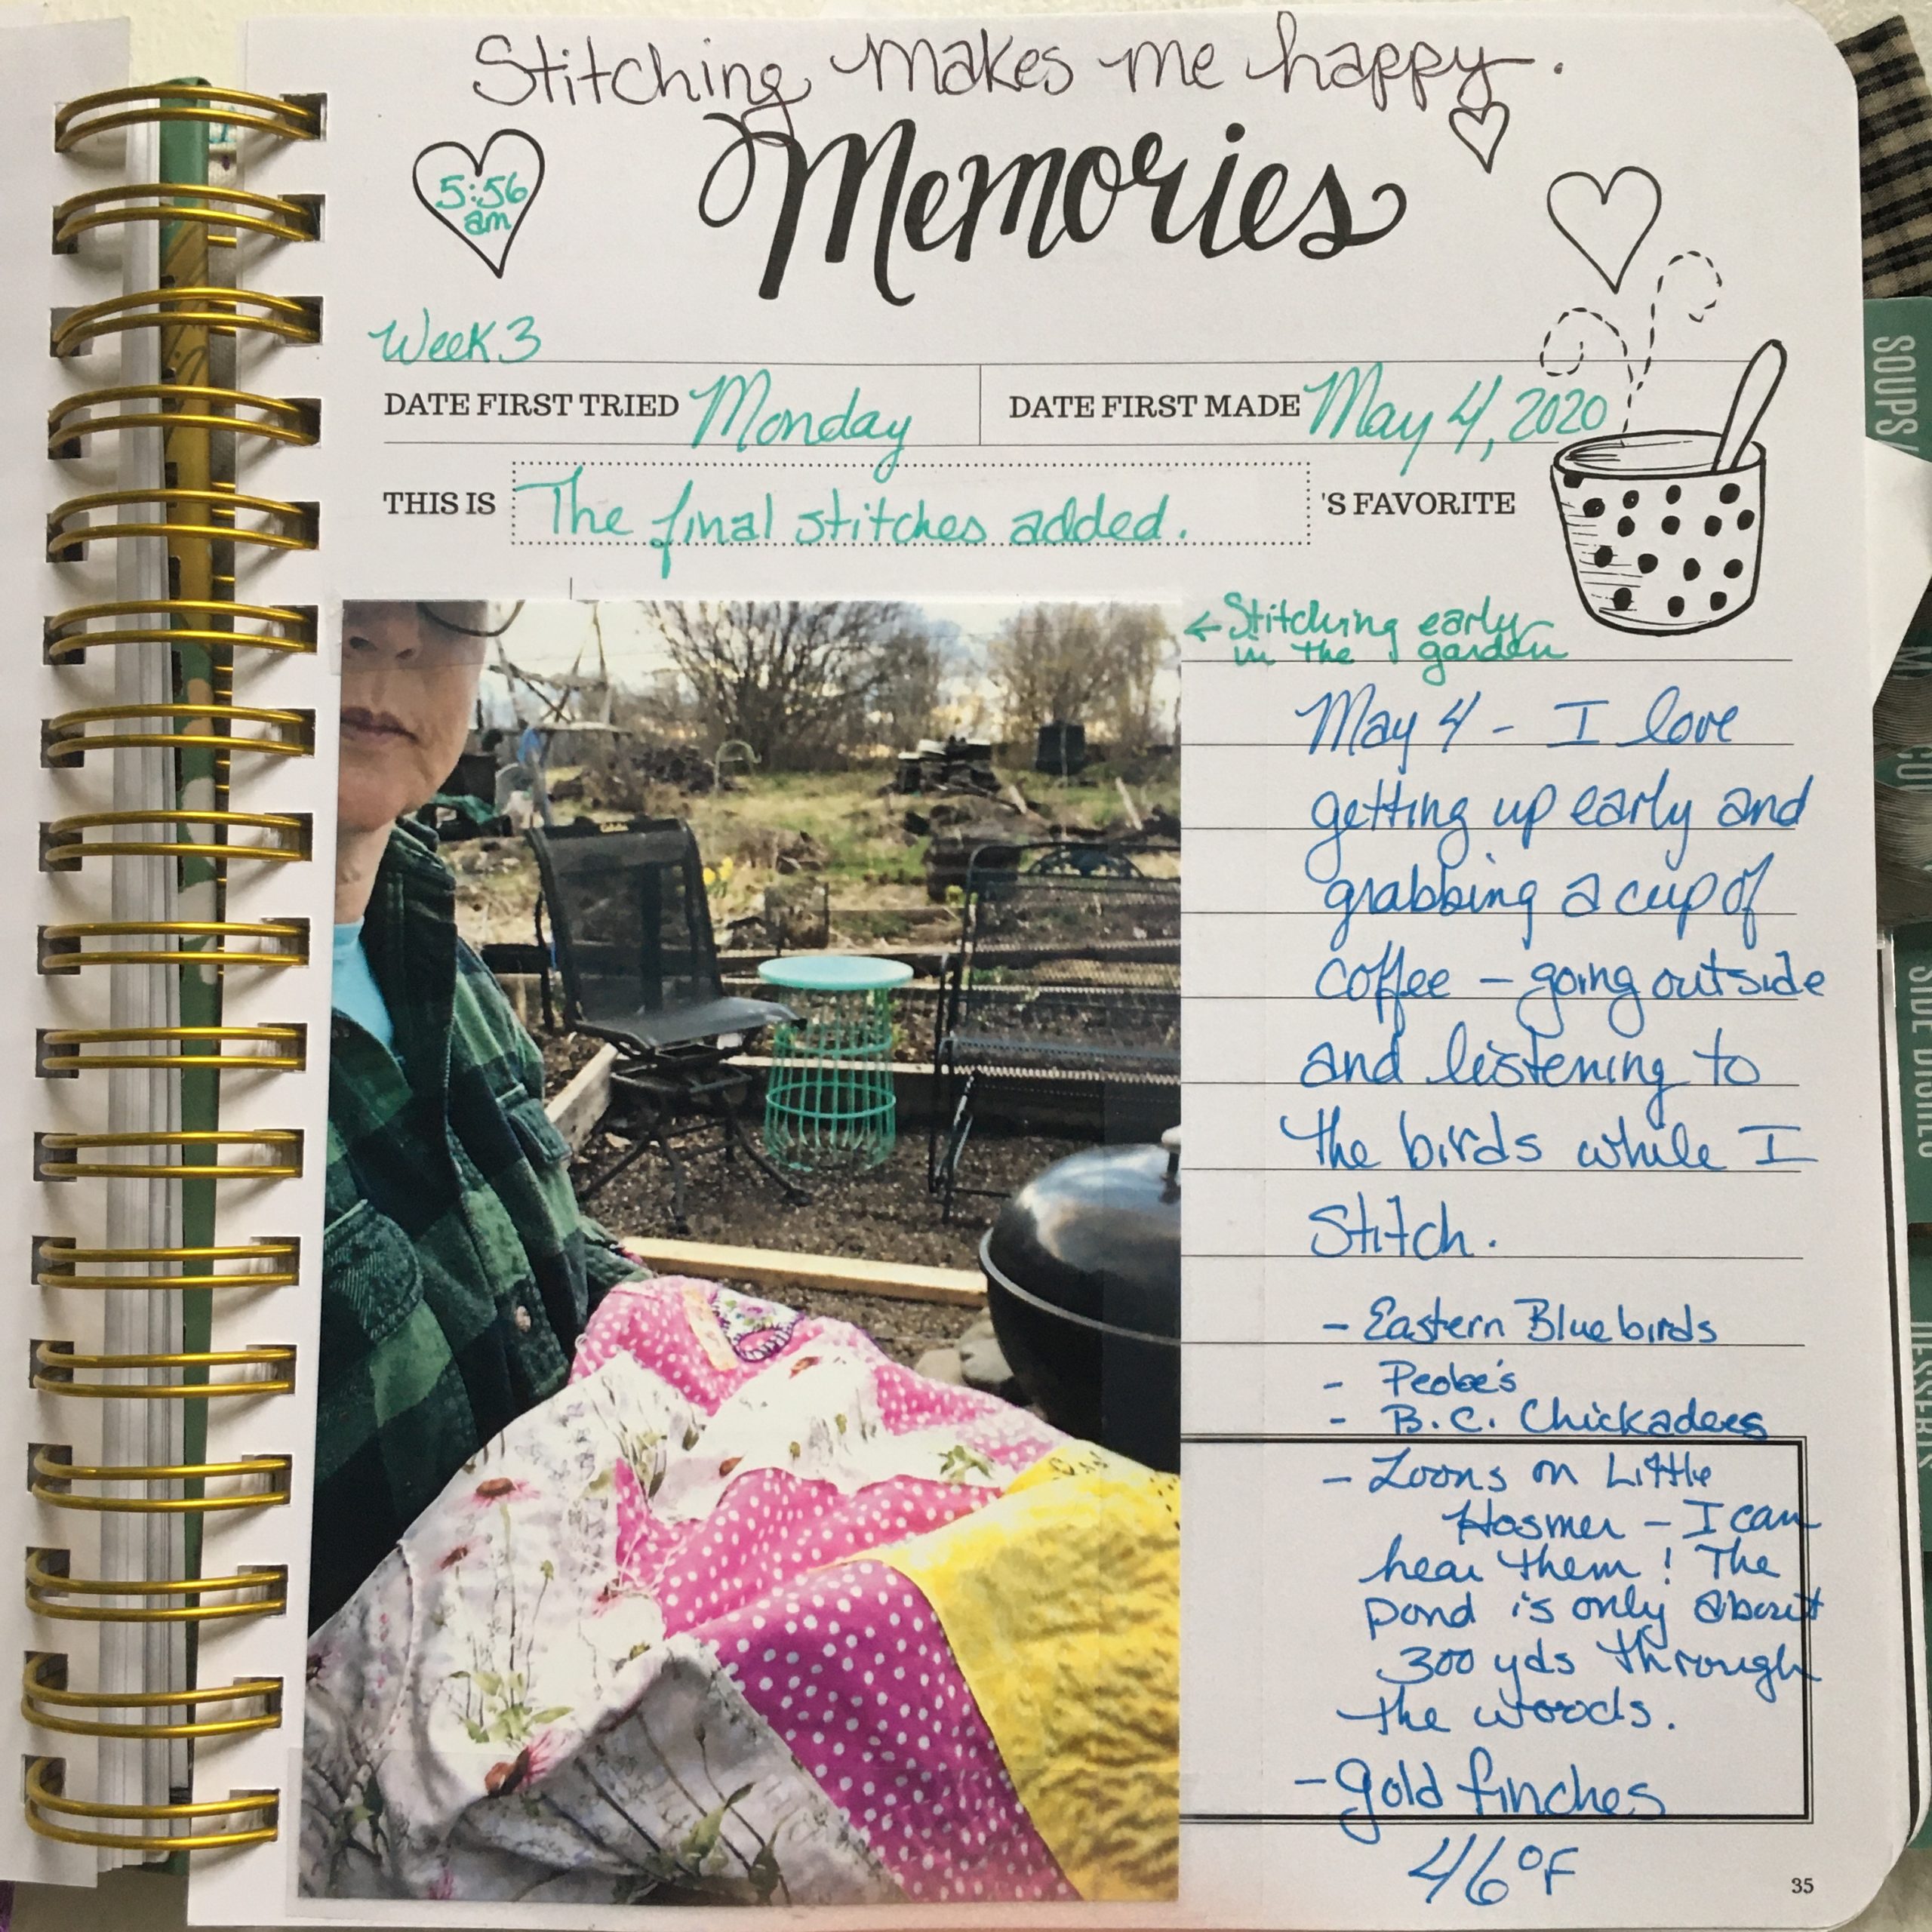 Stitching makes me happy.
5:56
am
Memories
Week 3
DATE FIRST TRIED Monday DATE FIRST MADE May 4, 2020
THIS IS The final stitches added. 'S FAVORITE
← Stitching early
in the garden
May 4 - I love
getting up early and
grabbing a cup of
coffee - going outside
and listening to
the birds while I
Stitch.
- Eastern Bluebirds
- Peobe's
- B.C. Chickadees
- Loons on Little
Hosmer - I can
hear them! The
pond is only about
300 yds through
the woods.
- gold finches
46°F
35
SOUPS
SIDE DISHES
DESSERTS